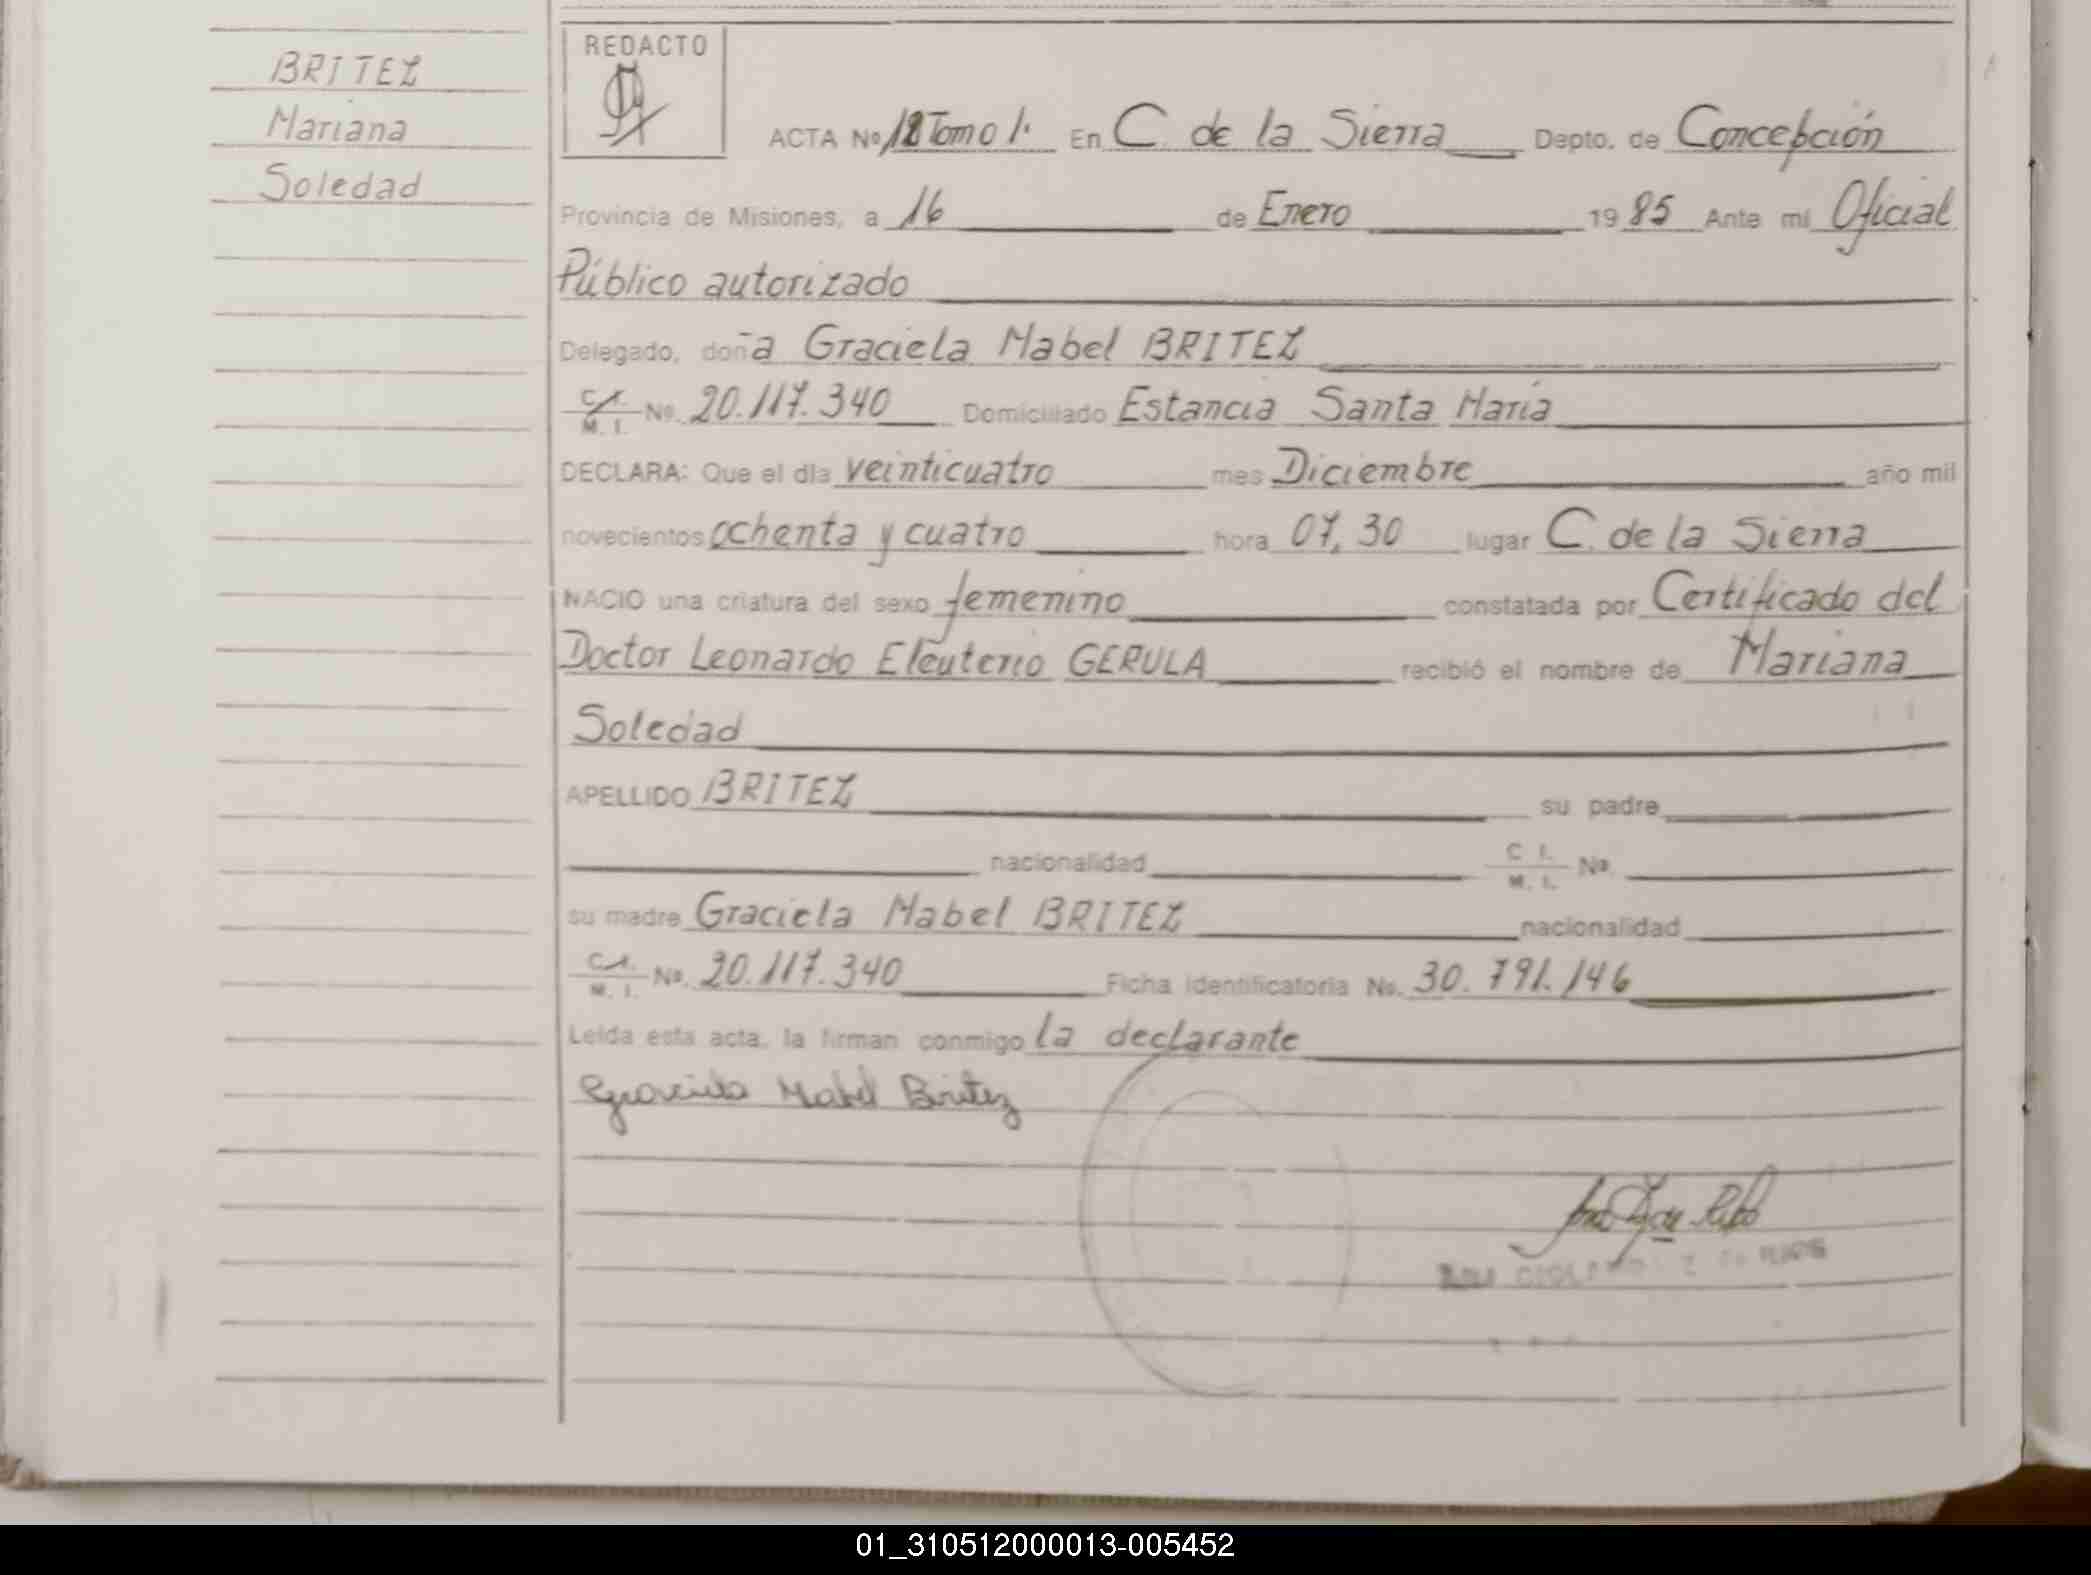 BRITEZ
Mariana
Soledad
REDACTO
ACTA No 18 Tomo 1. En C. de la Sierra Depto. de Concepción
Provincia de Misiones, a 16 de Enero 1985 Ante mi Oficial
Público autorizado
Delegado, doña Graciela Mabel BRITEZ
C. I. M. I. No. 20.117.340 Domiciliado Estancia Santa María
DECLARA: Que el día veinticuatro mes Diciembre año mil
novecientos ochenta y cuatro hora 07,30 lugar C. de la Sierra
NACIO una criatura del sexo femenino constatada por Certificado del
Doctor Leonardo Eleuterio GERULA recibió el nombre de Mariana
Soledad
APELLIDO BRITEZ su padre
nacionalidad C I. M. I. No.
su madre Graciela Mabel BRITEZ nacionalidad
C. I. M. I. No. 20.117.340 Ficha Identificatoria No. 30.791.146
Leída esta acta, la firman conmigo la declarante
Graciela Mabel Britez
01_310512000013-005452